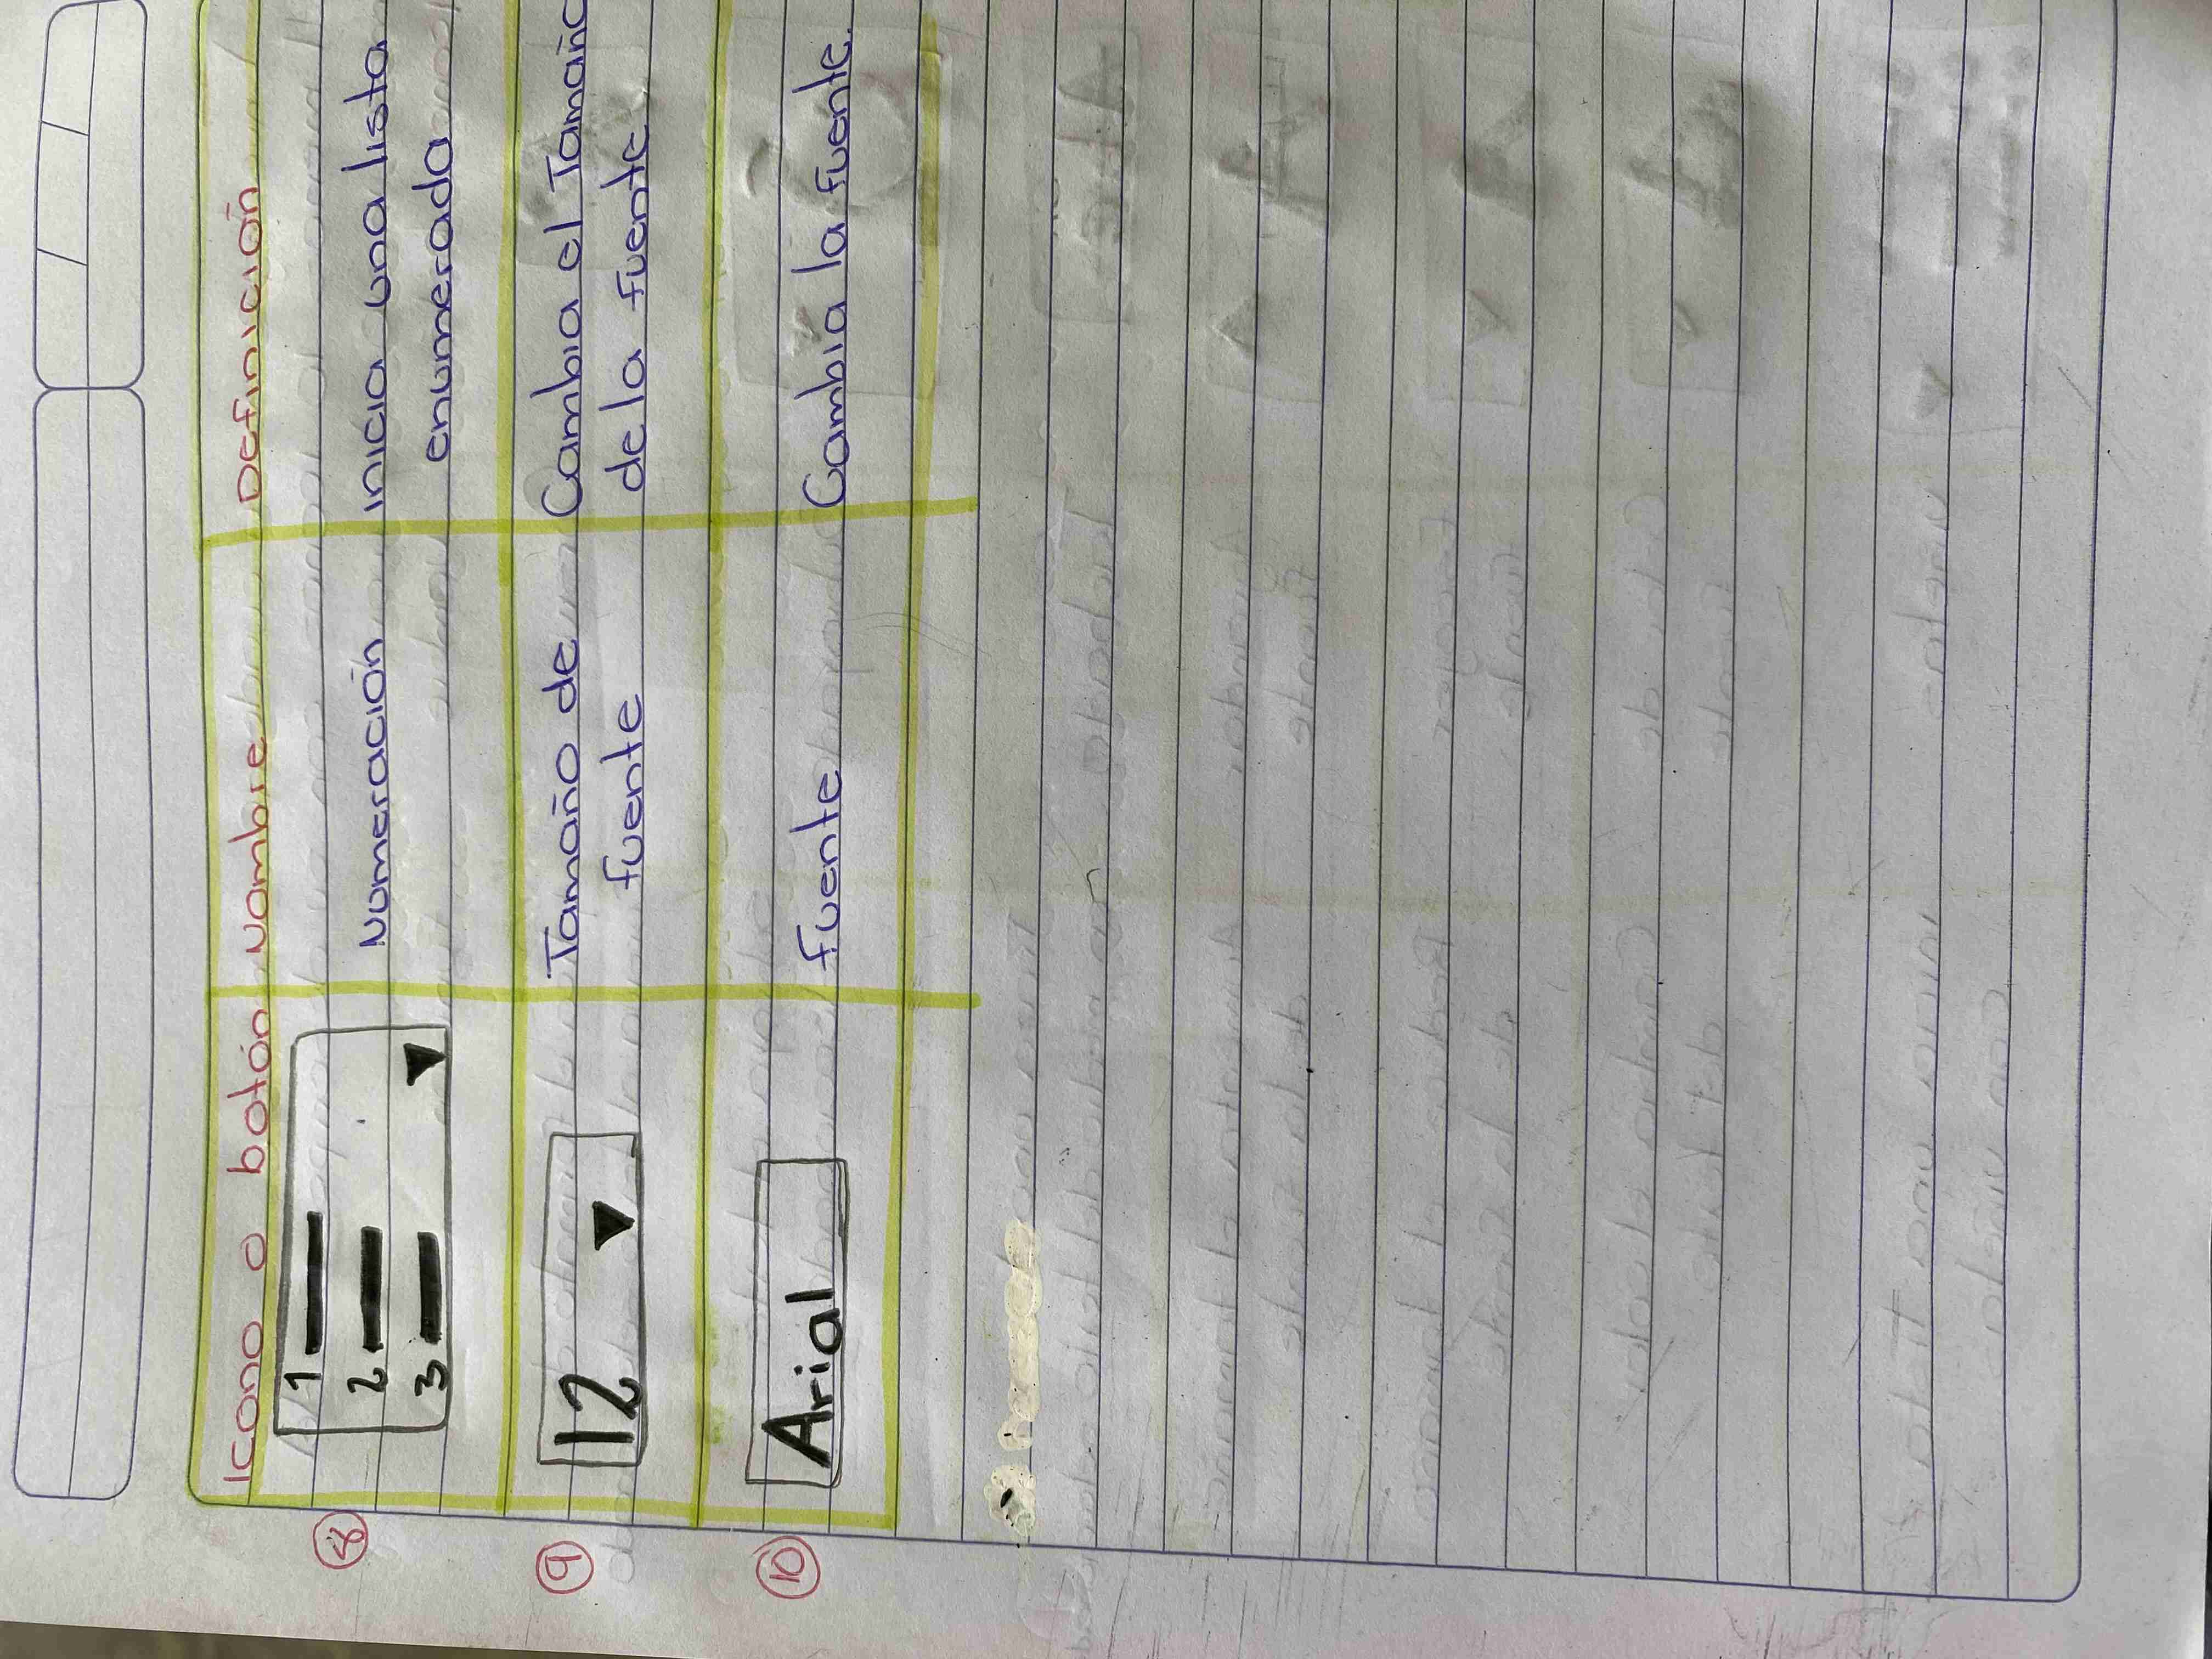 Icono o botón Nombre Definición
8
1
2
3
Numeración
inicia una lista
enumerada
9
12
Tamaño de
fuente
Cambia el Tamaño
de la fuente.
10
Arial
fuente
Cambia la fuente.